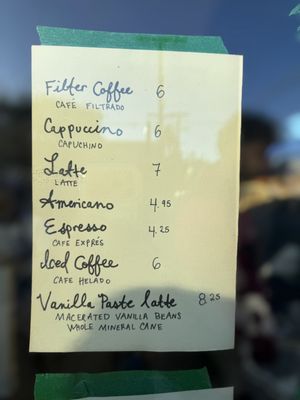 Filter Coffee 6
CAFÉ FILTRADO
Cappuccino 6
CAPUCHINO
Latte 7
LATTE
Americano 4.95
Espresso 4.25
CAFE EXPRÉS
Iced Coffee 6
CAFE HELADO
Vanilla Paste latte 8.25
MACERATED VANILLA BEANS
WHOLE MINERAL CANE